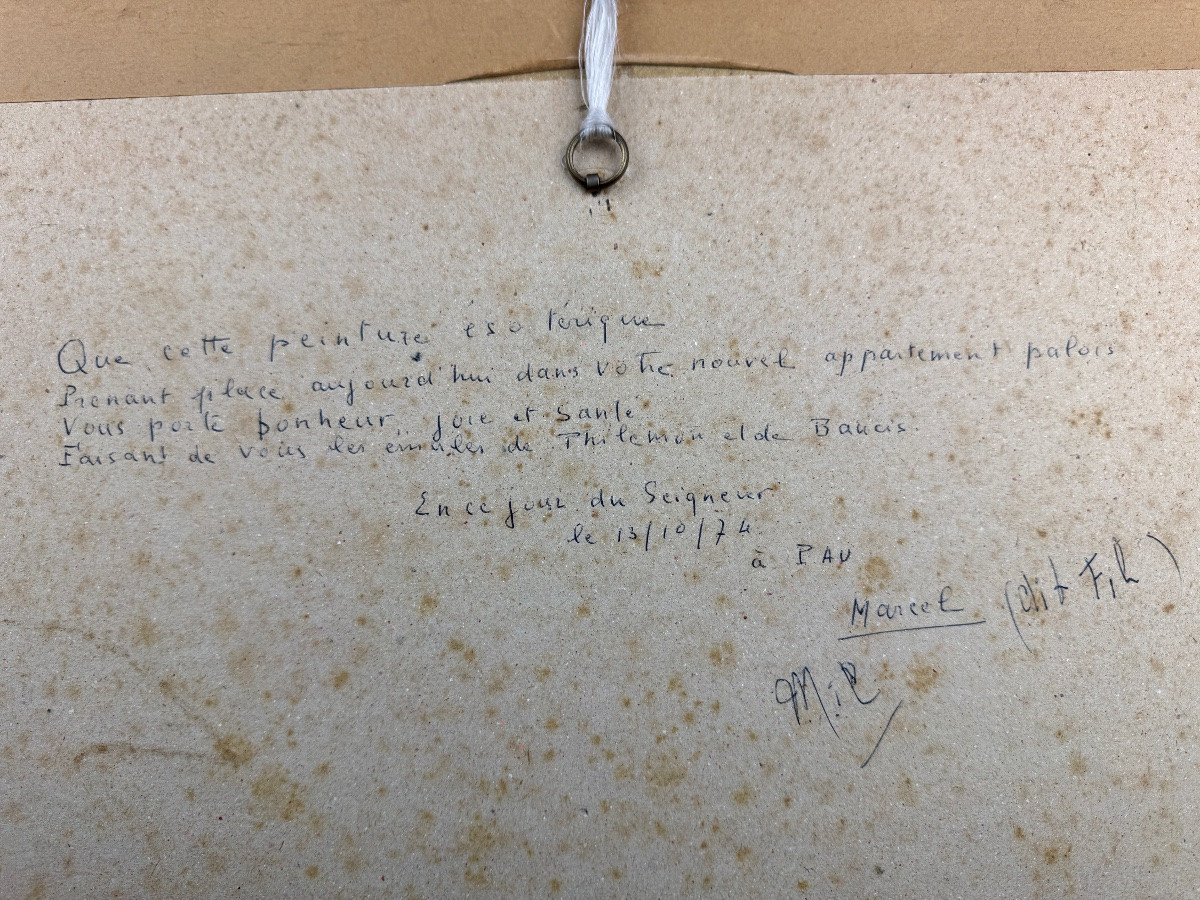 Que cette peinture ésotérique
Prenant place aujourd'hui dans votre nouvel appartement palois
Vous porte bonheur, joie et santé
Faisant de vous les émules de Philemon et de Baucis.
En ce jour du Seigneur
le 13/10/74
à PAU
Marcel (dit Fil)